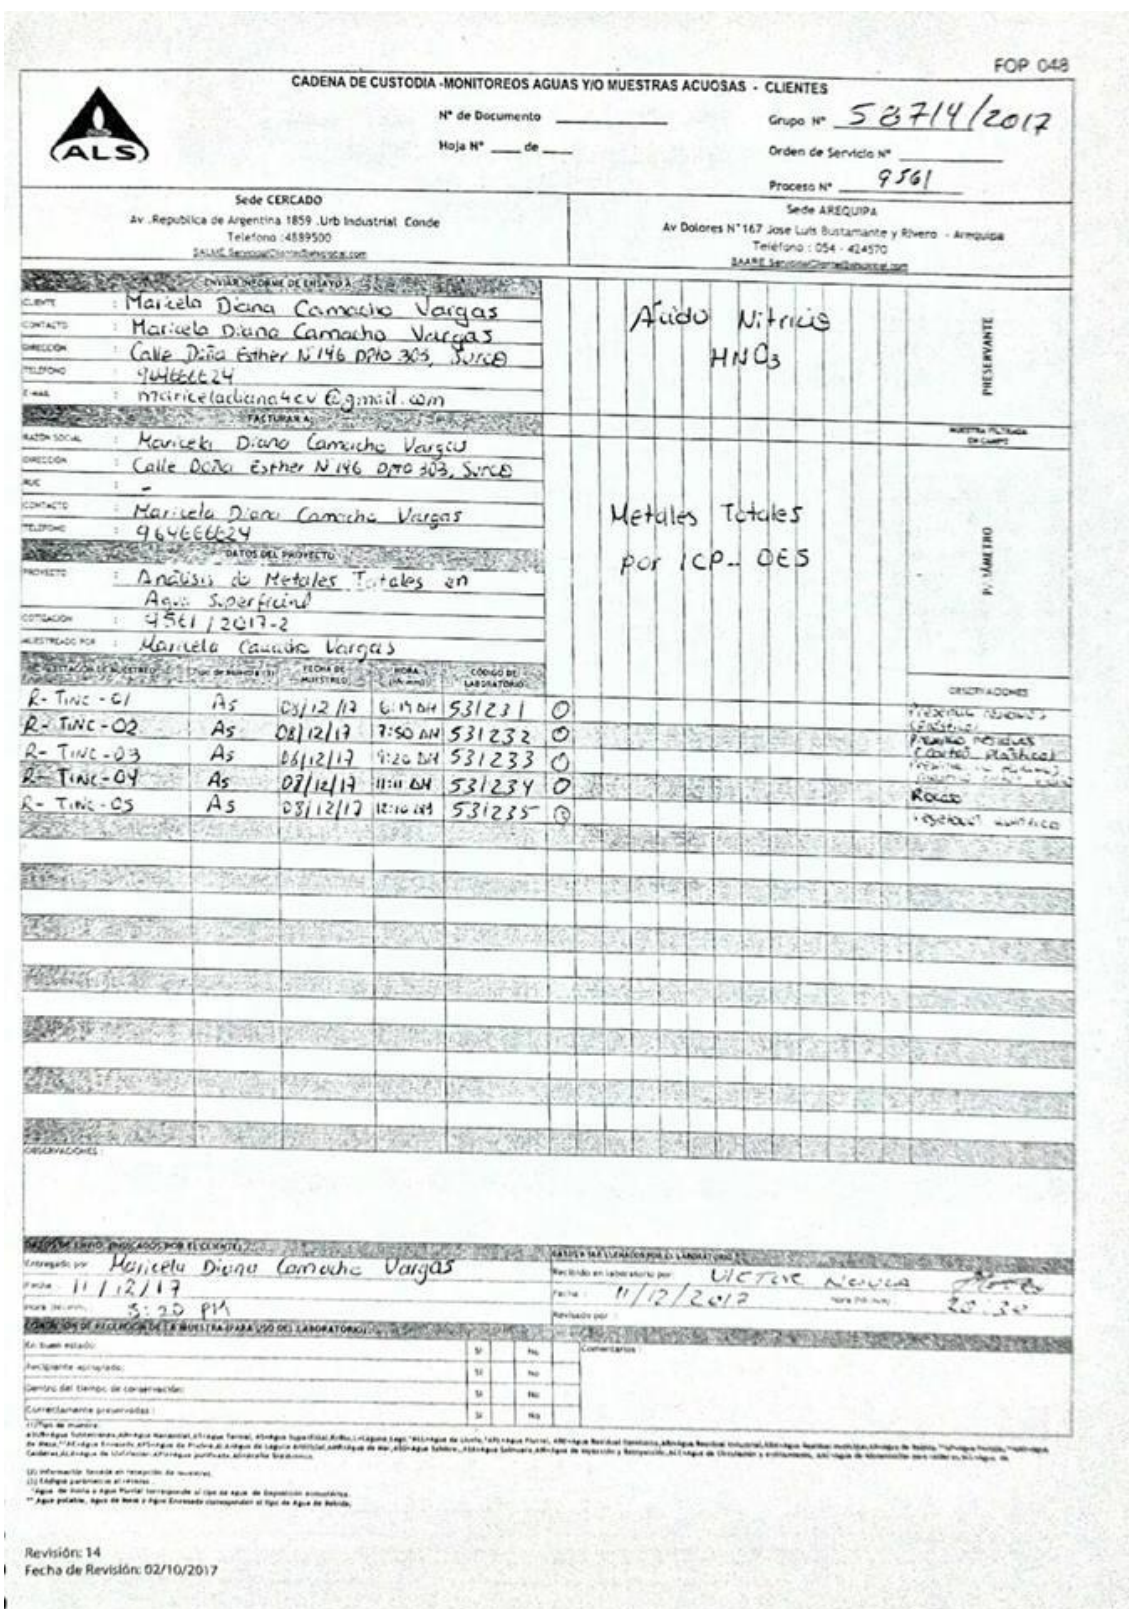 FOP 048
CADENA DE CUSTODIA -MONITOREOS AGUAS Y/O MUESTRAS ACUOSAS - CLIENTES
ALS
N° de Documento
Grupo N° 58714/2017
Hoja N° de
Orden de Servicio N°
Proceso N° 9561
Sede CERCADO
Av .Republica de Argentina 1859 .Urb Industrial Conde
Telefono :4889500
Sede AREQUIPA
Av Dolores N°167 Jose Luis Bustamante y Rivero - Arequipa
Teléfono : 054 - 424570
ENVIAR INFORME DE ENSAYO A:
CLIENTE : Maricela Diana Camacho Vargas
CONTACTO : Maricela Diana Camacho Vargas
DIRECCIÓN : Calle Doña Esther N 146 DPto 303, Surco
TELEFONO : 964666624
E-MAIL : mariceladiana4cv@gmail.com
Acido Nitrico
HNO3
PRESERVANTE
FACTURAR A:
RAZÓN SOCIAL : Maricela Diana Camacho Vargas
DIRECCIÓN : Calle Doña Esther N 146 DPTO 303, Surco
RUC : -
CONTACTO : Maricela Diana Camacho Vargas
TELEFONO : 964666624
MUESTRA FILTRADA
EN CAMPO
Metales Totales
por ICP-OES
PARÁMETRO
DATOS DEL PROYECTO
PROYECTO : Análisis de Metales Totales en
Agua Superficial
COTIZACIÓN : 9561/2017-2
MUESTREADO POR : Maricela Camacho Vargas
ESTACIÓN DE MUESTREO Tipo de Muestra (1) FECHA DE MUESTREO HORA CÓDIGO DE LABORATORIO OBSERVACIONES
R-TINC-01 As 08/12/17 531231
R-TINC-02 As 08/12/17 7:50 AM 531232
R-TINC-03 As 08/12/17 9:20 AM 531233
R-TINC-04 As 08/12/17 11:11 AM 531234
R-TINC-05 As 08/12/17 12:10 531235
OBSERVACIONES :
DATOS DE ENVIO (INDICADOS POR EL CLIENTE)
Entregado por Maricela Diana Camacho Vargas
Fecha : 11/12/17
5:20 PM
DATOS A SER LLENADOS POR EL LABORATORIO
Recibido en laboratorio por: VICTOR
Fecha : 11/12/2017 20:30
Revisado por :
CONDICIÓN DE RECEPCIÓN DE LA MUESTRA (PARA USO DEL LABORATORIO)
En buen estado: SI No Comentarios :
Recipiente apropiado: SI No
Dentro del tiempo de conservación: SI No
Correctamente preservadas : SI No
(1)Tipo de muestra :
(2) Información llenada en recepción de muestras.
Revisión: 14
Fecha de Revisión: 02/10/2017